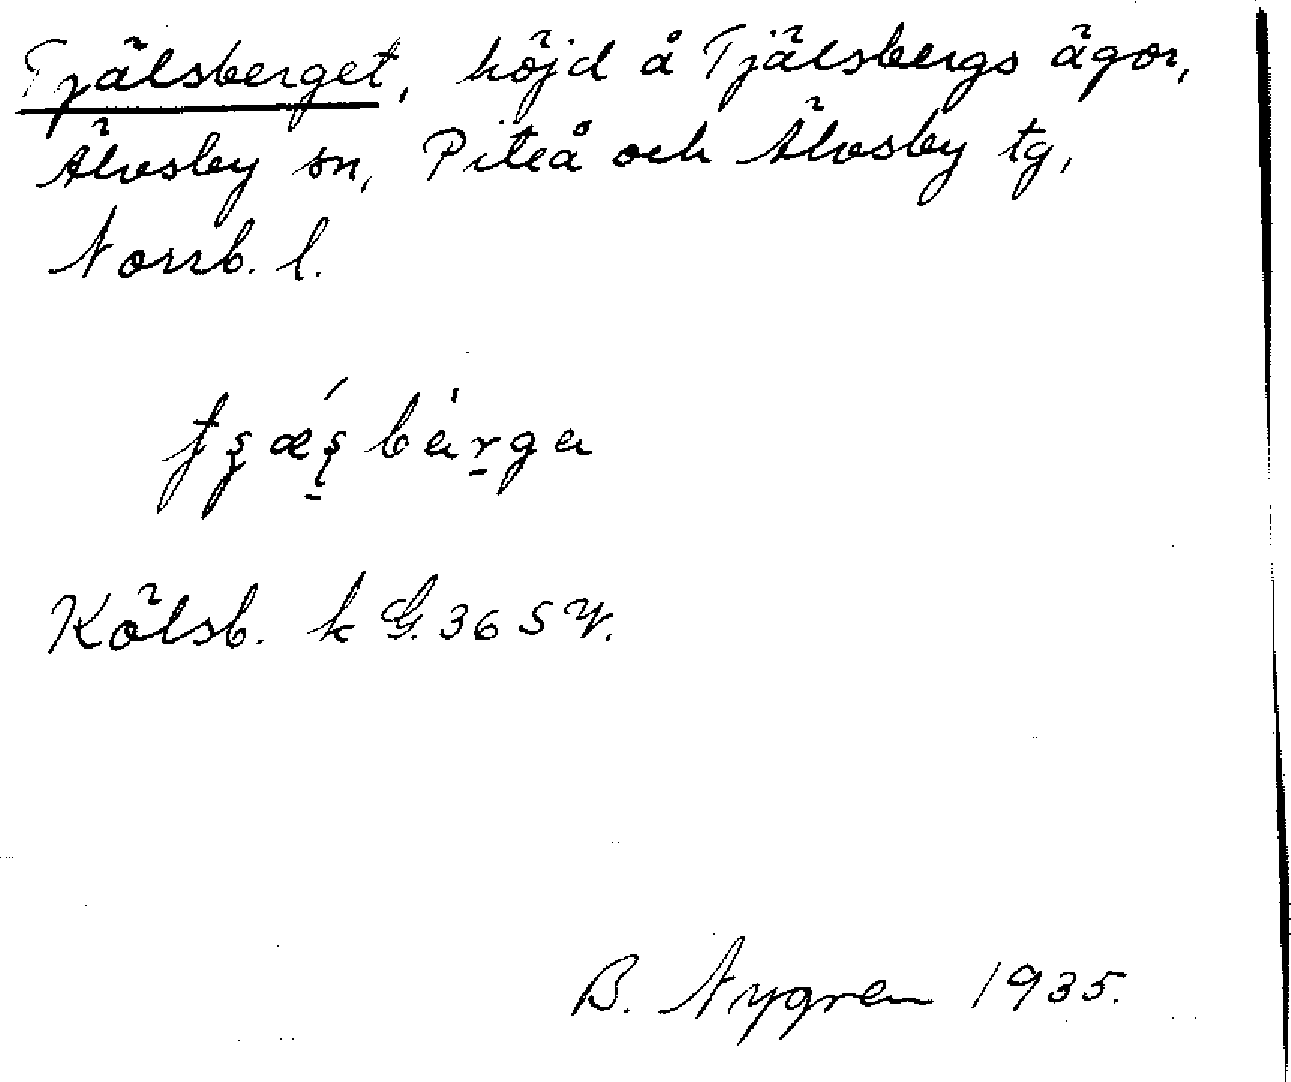 Tjälsberget, höjd å Tjälsbergs ägor,
Älvsby sn, Piteå och Älvsby tg,
Norrb. l.
Kälsb. k G. 36 SV.
B. Nygren 1935.